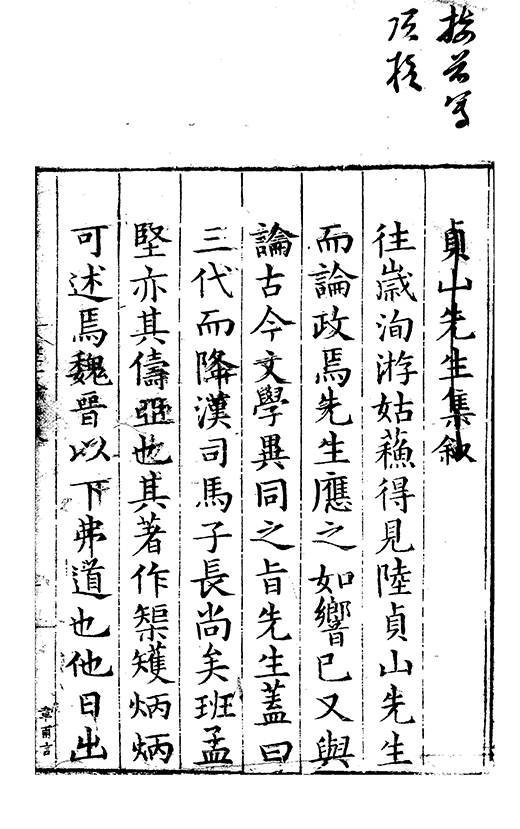 貞山先生集敘
往歲洵游姑蘓得見陸貞山先生
而論政焉先生應之如響已又與
論古今文學異同之旨先生蓋曰
三代而降漢司馬子長尚矣班孟
堅亦其儔亞也其著作榘矱炳炳
可述焉魏晉以下弗道也他日出
章甫言